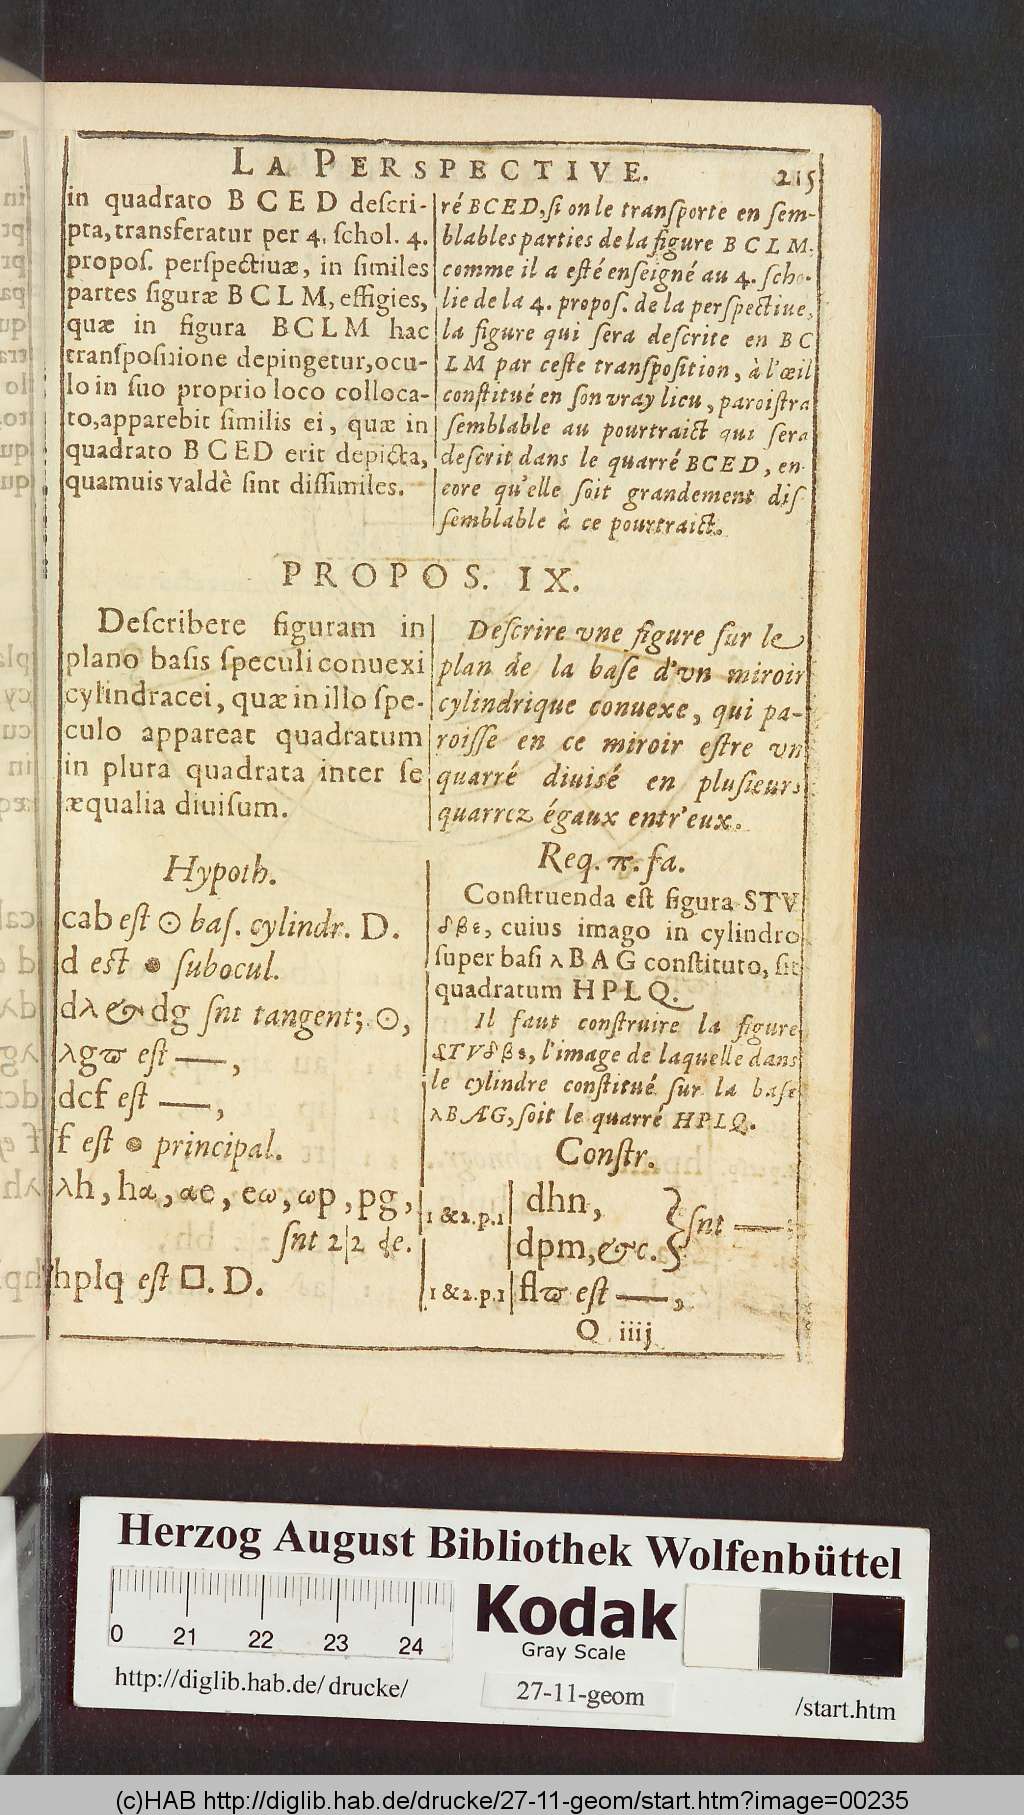 LA PERSPECTIVE.
215
in quadrato B C E D deſcri-
pta, transferatur per 4. ſchol. 4.
propoſ. perſpectiuæ, in ſimiles
partes figuræ B C L M, effigies,
quæ in figura BCLM hac
tranſpoſitione depingetur, ocu-
lo in ſuo proprio loco colloca-
to, apparebit ſimilis ei, quæ in
quadrato B C E D erit depicta,
quamuis valdè ſint diſſimiles.
ré BCED, ſi on le tranſporte en ſem-
blables parties de la figure B C L M.
comme il a eſté enſeigné au 4. ſcho-
lie de la 4. propoſ. de la perſpectiue,
la figure qui ſera deſcrite en B C
L M par ceſte tranſpoſition, à l'œil
conſtitué en ſon vray lieu, paroiſtra
ſemblable au pourtraict qui ſera
deſcrit dans le quarré BCED, en
core qu'elle ſoit grandement diſ
ſemblable à ce pourtraict.
PROPOS. IX.
Deſcribere figuram in
plano baſis ſpeculi conuexi
cylindracei, quæ in illo ſpe-
culo appareat quadratum
in plura quadrata inter ſe
æqualia diuiſum.
Deſcrire vne figure ſur le
plan de la baſe d'vn miroir
cylindrique conuexe, qui pa-
roiſſe en ce miroir eſtre vn
quarré diuiſé en pluſieurs
quarrez égaux entr'eux.
Hypoth.
cab eſt ⊙ baſ. cylindr. D.
d eſt ● ſubocul.
dλ & dg ſnt tangent; ⊙,
λgϖ eſt —,
dcf eſt —,
f eſt ● principal.
λh, hα, αe, eω, ωp, pg,
ſnt 2|2 de.
hplq eſt □. D.
Req. π. fa.
Conſtruenda eſt figura STV
δβε, cuius imago in cylindro
ſuper baſi λ B A G conſtituto, ſit
quadratum H P L Q.
Il faut conſtruire la figure
STVδβε, l'image de laquelle dans
le cylindre conſtitué ſur la baſe
λBAG, ſoit le quarré HPLQ.
Conſtr.
1 & 2. p. 1 | dhn,
dpm, &c. } ſnt —;
1 & 2. p. 1 | flϖ eſt —,
Q iiij
Herzog August Bibliothek Wolfenbüttel
0 21 22 23 24
Kodak
Gray Scale
http://diglib.hab.de/drucke/
27-11-geom
/start.htm
(c)HAB http://diglib.hab.de/drucke/27-11-geom/start.htm?image=00235